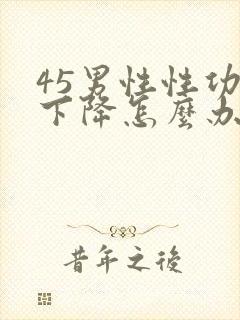 45男性性功
下降怎麼办
昔年之後